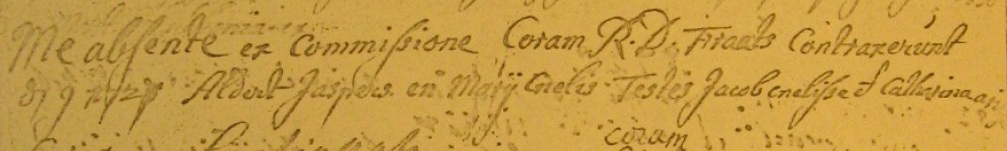 Me absente ex Commissione Coram R: D. Traats Contraxerunt
Aldert Jaspers en Marij Cnelis Testes Jacob Cnelisse et Catharina
coram